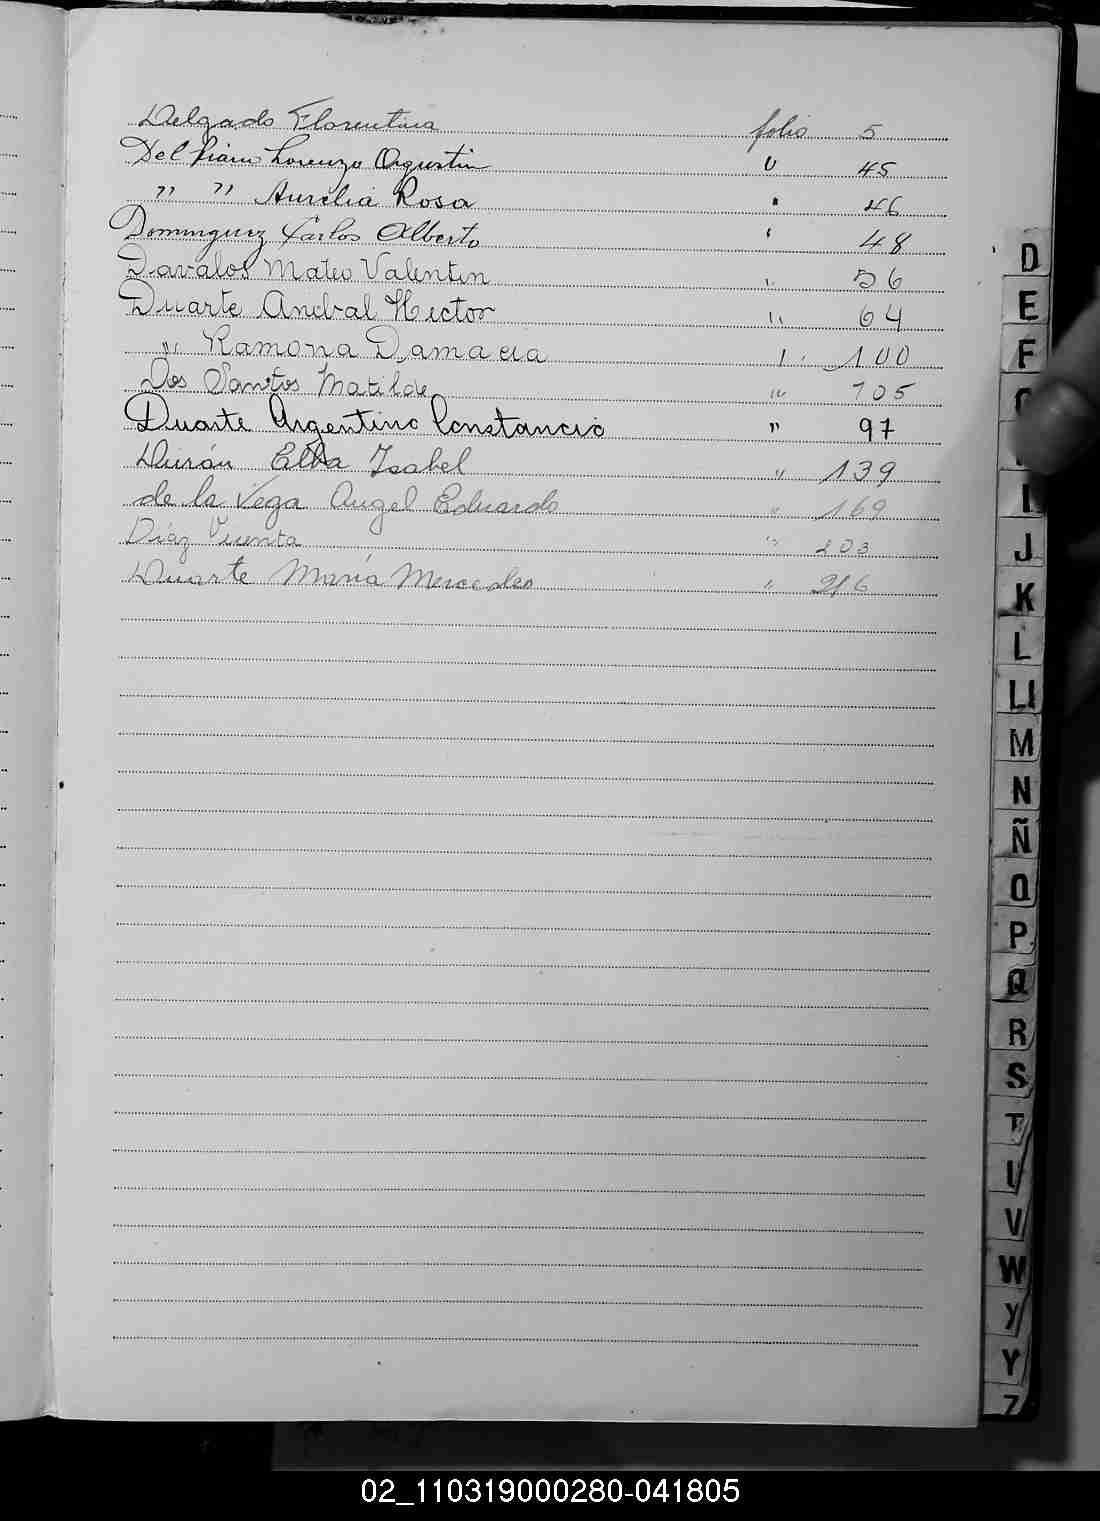 Delgado Florentina folio 5
Del Lorenzo Agustin " 45
" " Aurelia Rosa " 46
Dominguez Carlos Alberto " 48
Davalos Mateo Valentin " 56
Duarte Anibal Hector " 64
" Ramona Damacia " 100
Dos Santos Matilde " 105
Duarte Argentino Constancio " 97
Durán Elba Isabel " 139
de la Vega Angel Eduardo " 169
Diaz " 203
Duarte María Mercedes " 216
D
E
F
I
J
K
L
Ll
M
N
Ñ
O
P
Q
R
S
T
V
W
Y
Z
02_110319000280-041805